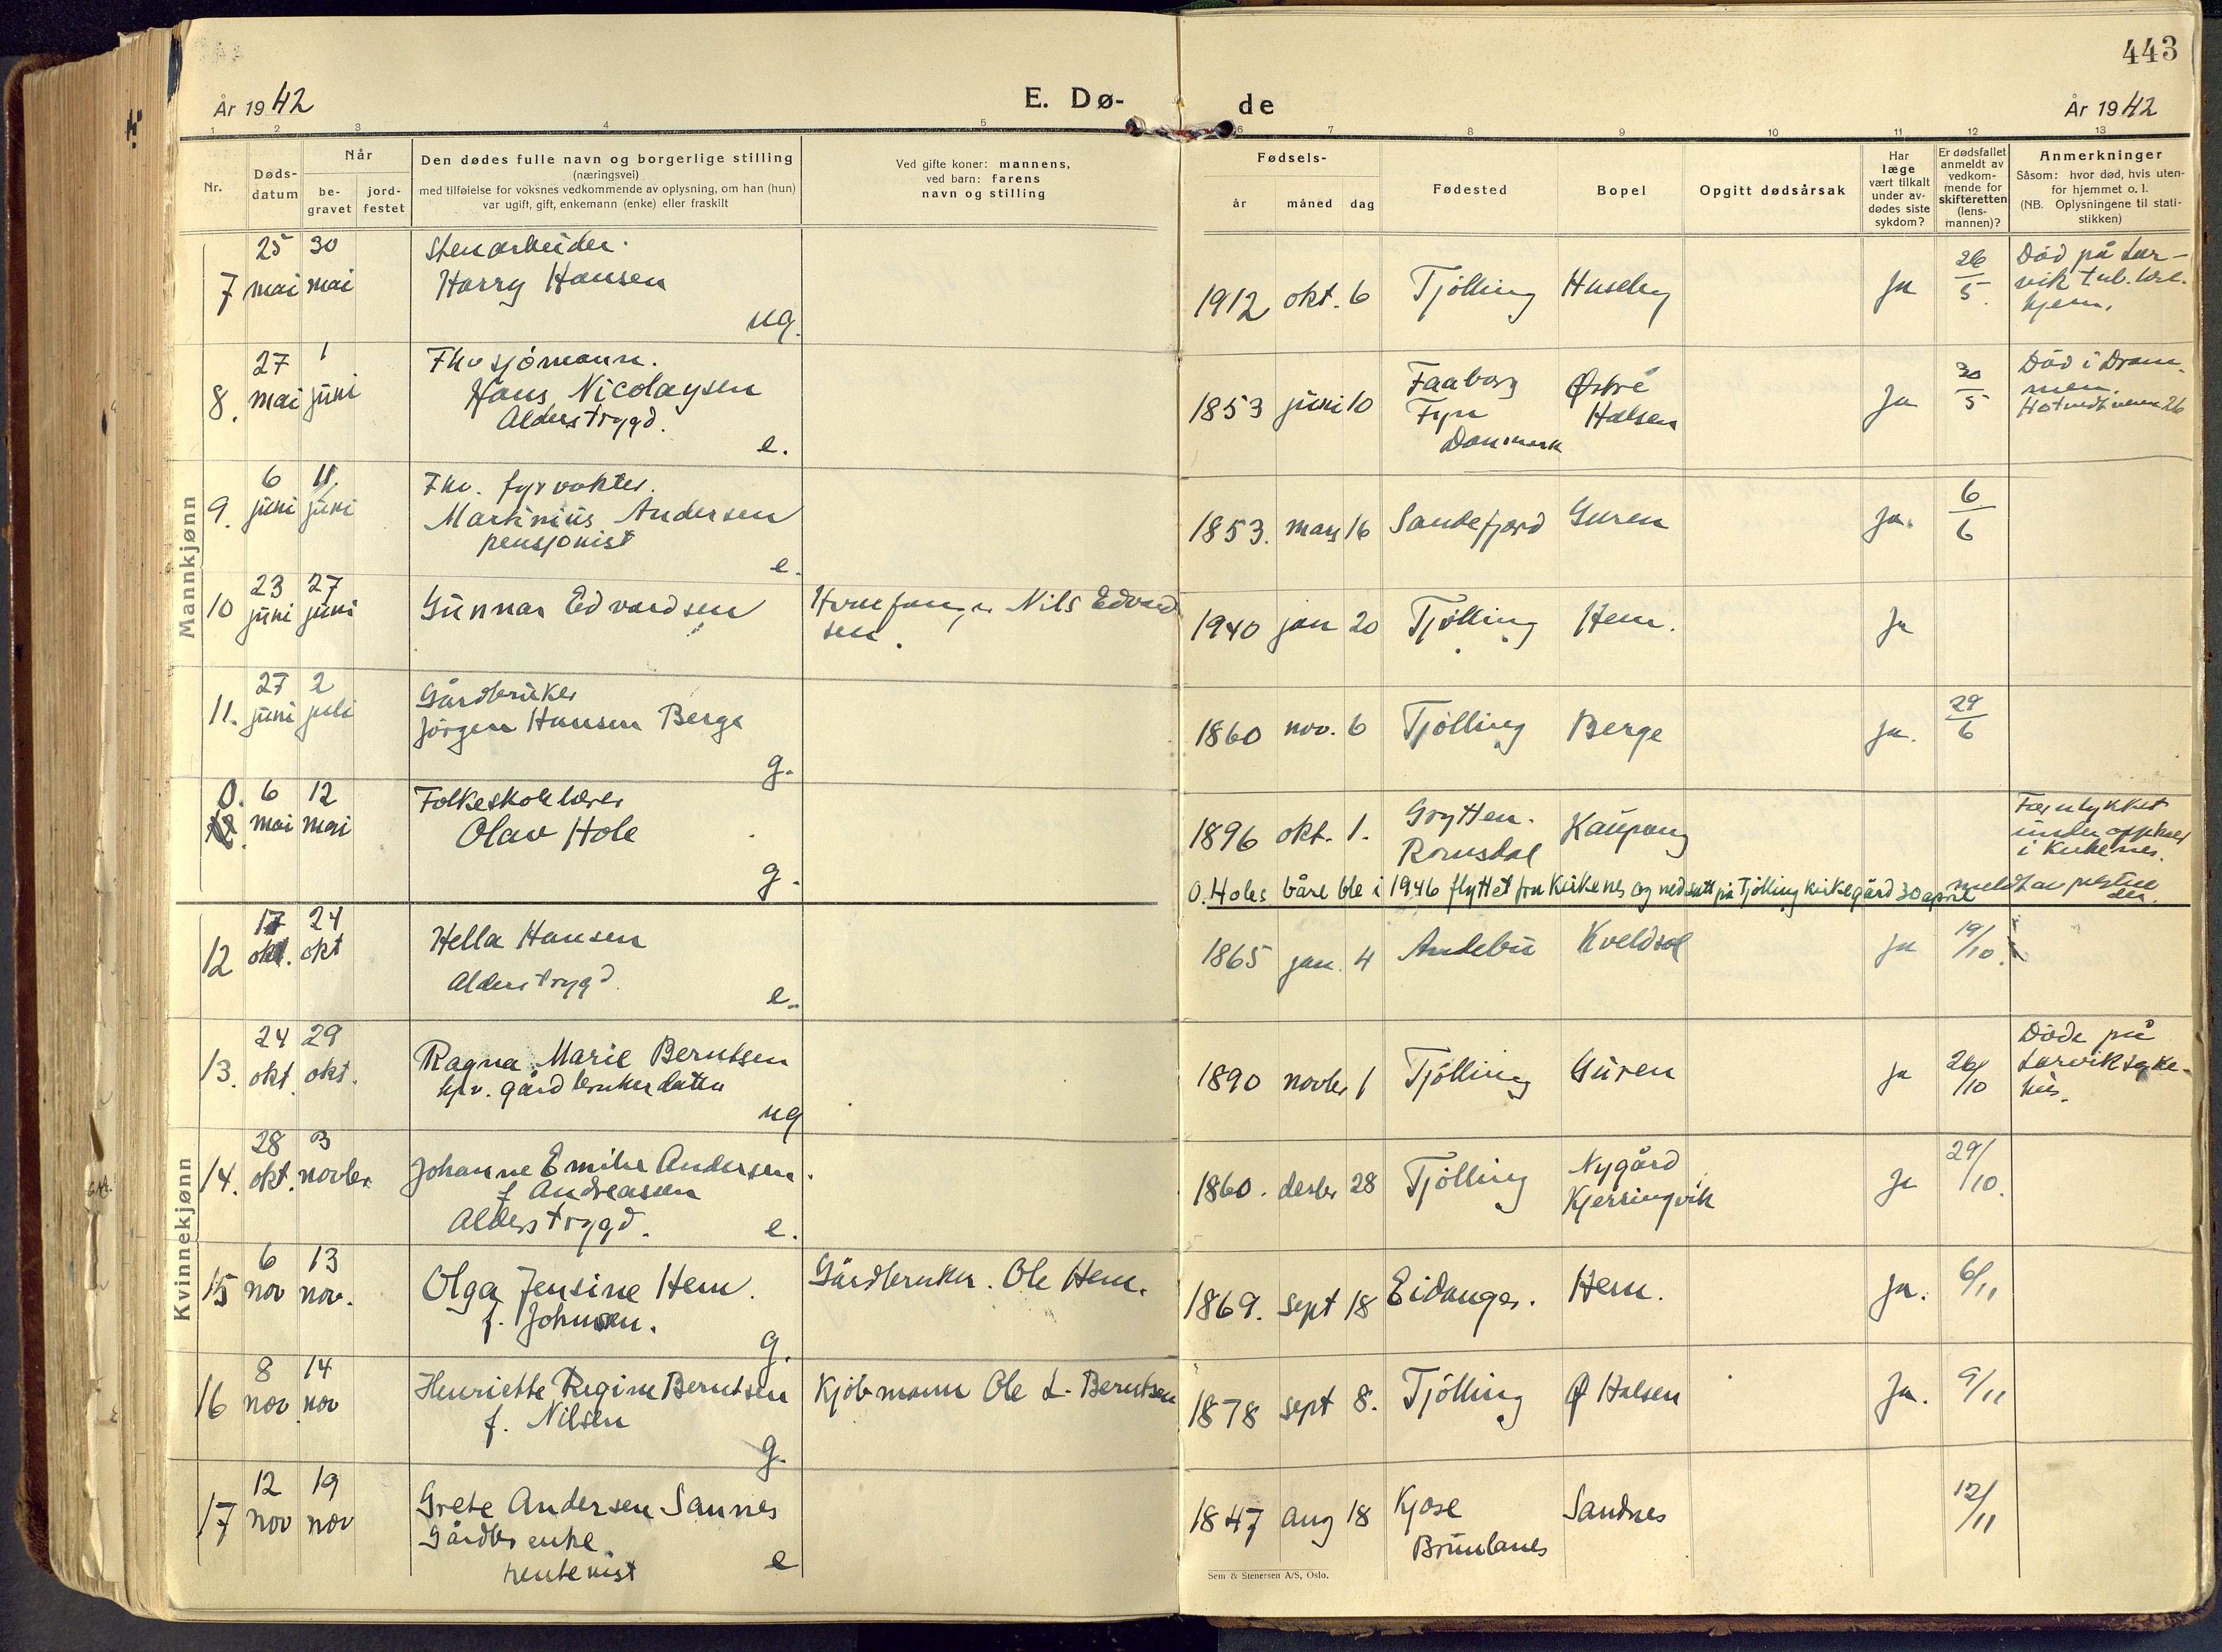 443
År 1942
E. Dø-
de
År 1942
1 2 3 4 5 6 7 8 9 10 11 12 13
Nr.
Døds-
datum
Når
be-
gravet
jord-
festet
Den dødes fulle navn og borgerlige stilling
(næringsvei)
med tilføielse for voksnes vedkommende av oplysning, om han (hun)
var ugift, gift, enkemann (enke) eller fraskilt
Ved gifte koner: mannens,
ved barn: farens
navn og stilling
Fødsels-
år måned dag
Fødested
Bopel
Opgitt dødsårsak
Har
læge
vært tilkalt
under av-
dødes siste
sykdom?
Er dødsfallet
anmeldt av
vedkom-
mende for
skifteretten
(lens-
mannen)?
Anmerkninger
Såsom: hvor død, hvis uten-
for hjemmet o. l.
(NB. Oplysningene til stati-
stikken)
Mannkjønn
7 25 mai 30 mai
Stenarbeider.
Harry Hansen
ug.
1912 okt. 6 Tjölling Huseby Ja 26/5.
Död på Lar-
vik tub.
hjem.
8. 27 mai 1 juni
Fhv sjömann.
Hans Nicolaysen
Alderstrygd.
e.
1853 juni 10 Faaborg
Fyn
Danmark
Østre
Halsen
Ja 30/5
Död i Dram-
men.
26
9. 6 juni 11 juni
Fhv. fyrvokter.
Martinius Andersen
pensjonist
e.
1853. mars 16 Sandefjord Guren Ja. 6/6
10 23 juni 27 juni
Gunnar Edvardsen
Nils Edvard
sen.
1940 jan 20 Tjölling Hem. Ja
11. 27 juni 2 juli
Gårdbruker
Jörgen Hansen Berge
g.
1860 nov. 6 Tjölling Berge Ja. 29/6
0. 6 mai 12 mai
Folkeskolelærer
Olav Hole
g.
1896 okt. 1. Grytten.
Romsdal
Kaupang
under opphold
i Kirkenes.
meldt av
O. Holes båre ble i 1946 flyttet fra Kirkenes og nedsatt på Tjölling kirkegård 30 april
Kvinnekjønn
12 17 okt. 24 okt
Hella Hansen
Alderstrygd.
e.
1865 jan. 4 Andebu Kveldsol Ja 19/10.
13. 24 okt 29 okt.
Ragna Marie Berntsen
hjv. gårdbrukerdatter
ug
1890 novbr 1 Tjölling Guren Ja 26/10
Döde på
Larvik syke-
hus.
14. 28 okt. 3 novbr.
Johanne Emilie Andersen.
f Andreassen
Alderstrygd.
e.
1860. desbr 28 Tjölling Nygård
Kjerringvik
Ja 29/10.
15 6 nov 13 nov.
Olga Jensine Hem.
f. Johnsen.
g.
Gårdbruker. Ole Hem.
1869. sept 18 Eidanger. Hem. Ja. 6/11
16 8 nov 14 nov
Henriette Regine Berntsen
f. Nilsen
g.
Kjöbmann Ole L. Berntsen
1878 sept 8. Tjölling Ø Halsen Ja. 9/11
17 12 nov 19 nov
Grete Andersen Sannes
Gårdbr enke
rentenist
e
1847 aug 18 Kjose
Brunlanes
Sandnes
12/11
Sem & Stenersen A/S, Oslo.